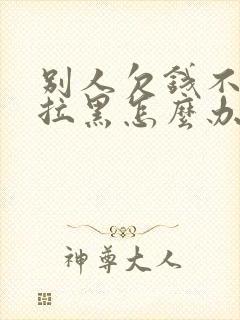 别人欠錢不
拉黑怎麼办
神尊大人